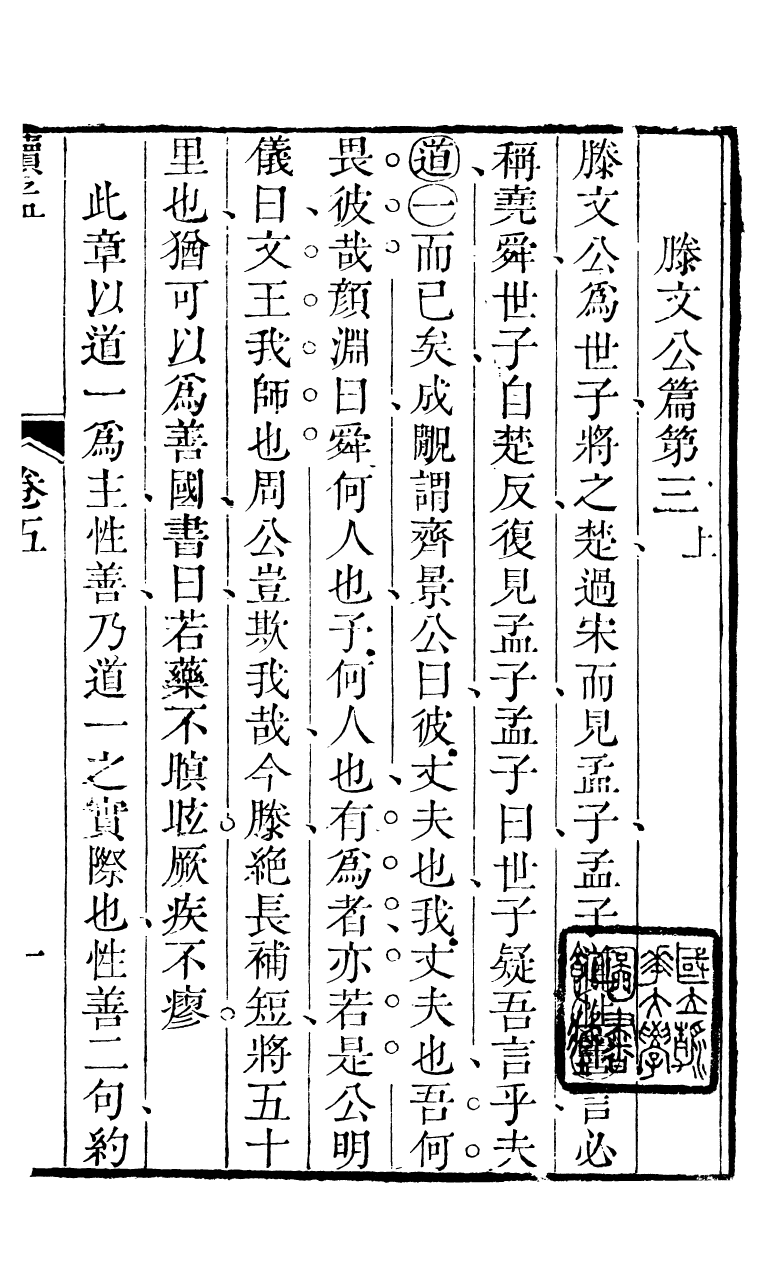 滕文公篇第三 上
滕文公爲世子將之楚過宋而見孟子孟子言必
稱堯舜世子自楚反復見孟子孟子曰世子疑吾言乎夫
道一而已矣成覵謂齊景公曰彼丈夫也我丈夫也吾何
畏彼哉顏淵曰舜何人也子何人也有爲者亦若是公明
儀曰文王我師也周公豈欺我哉今滕絶長補短將五十
里也猶可以爲善國書曰若藥不瞑眩厥疾不瘳
此章以道一爲主性善乃道一之實際也性善二句約
讀孟
卷五
一
國立
大學
圖書